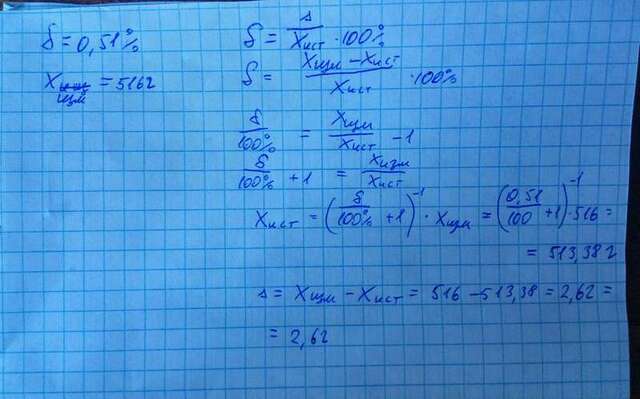 δ = 0,51%
X изм = 516г
δ = Δ/Xист · 100%
δ = (Xизм − Xист)/Xист · 100%
δ/100% = Xизм/Xист − 1
δ/100% + 1 = Xизм/Xист
Xист = (δ/100% + 1)⁻¹ · Xизм = (0,51/100 + 1)⁻¹ · 516 =
= 513,38 г
Δ = Xизм − Xист = 516 − 513,38 = 2,62 =
= 2,62